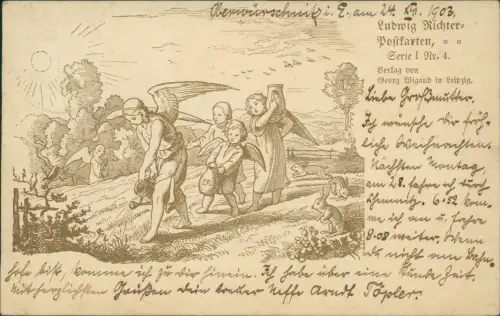 Oberwürschnitz i. E. am 24. XII. 1903.
Ludwig Richter-
Postkarten,
Serie I Nr. 4.
Verlag von
Georg Wigand in Leipzig.
Liebe Großmutter.
Ich wünsche dir fröh-
liche Weihnachten.
Nächsten Montag,
am 28. fahre ich durch
Chemnitz. 6.52 kom-
me ich an u. fahre
8.08 weiter. Wenn
du nicht am Bahn-
hofe bist, komme ich zu dir hinein. Ich habe über eine Stunde Zeit.
Mit herzlichsten Grüßen dein treuer Neffe Arndt Töpler.